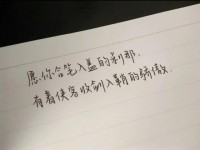 愿你合笔入盖的刹那.
有着侠客收剑入鞘的骄傲.